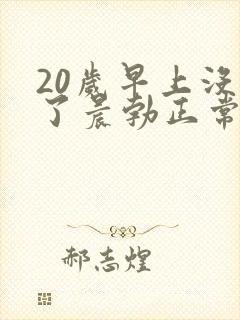 20歲早上没
了晨勃正常
郝志煌